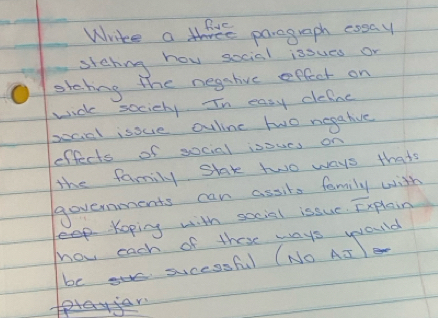 five
Write a three paragraph essay
stating how social issues or
stating the negative effect on
wide society In easy define
social issue ouline two negative
effects of social issues on
the family State two ways thats
governments can assits family with
cop Koping with social issue. Explain
how each of these ways would
be suc sucessful (No AI)
playjar.